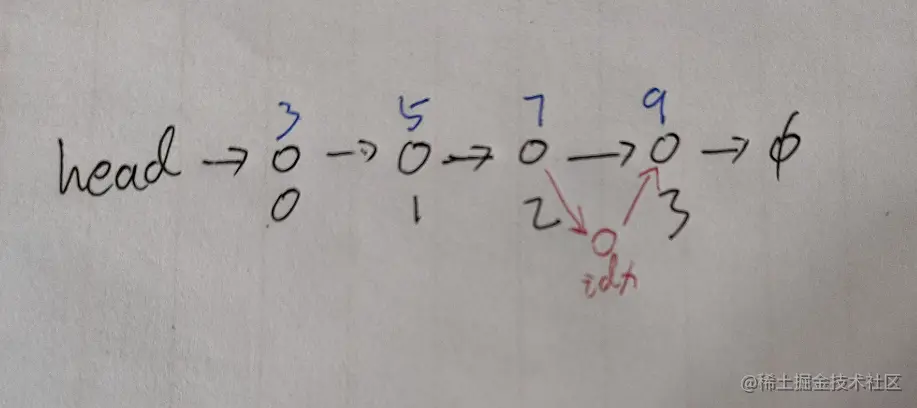 3 5 7 9
head → O → O → O → O → ∅
0 1 2 3
idx
@稀土掘金技术社区